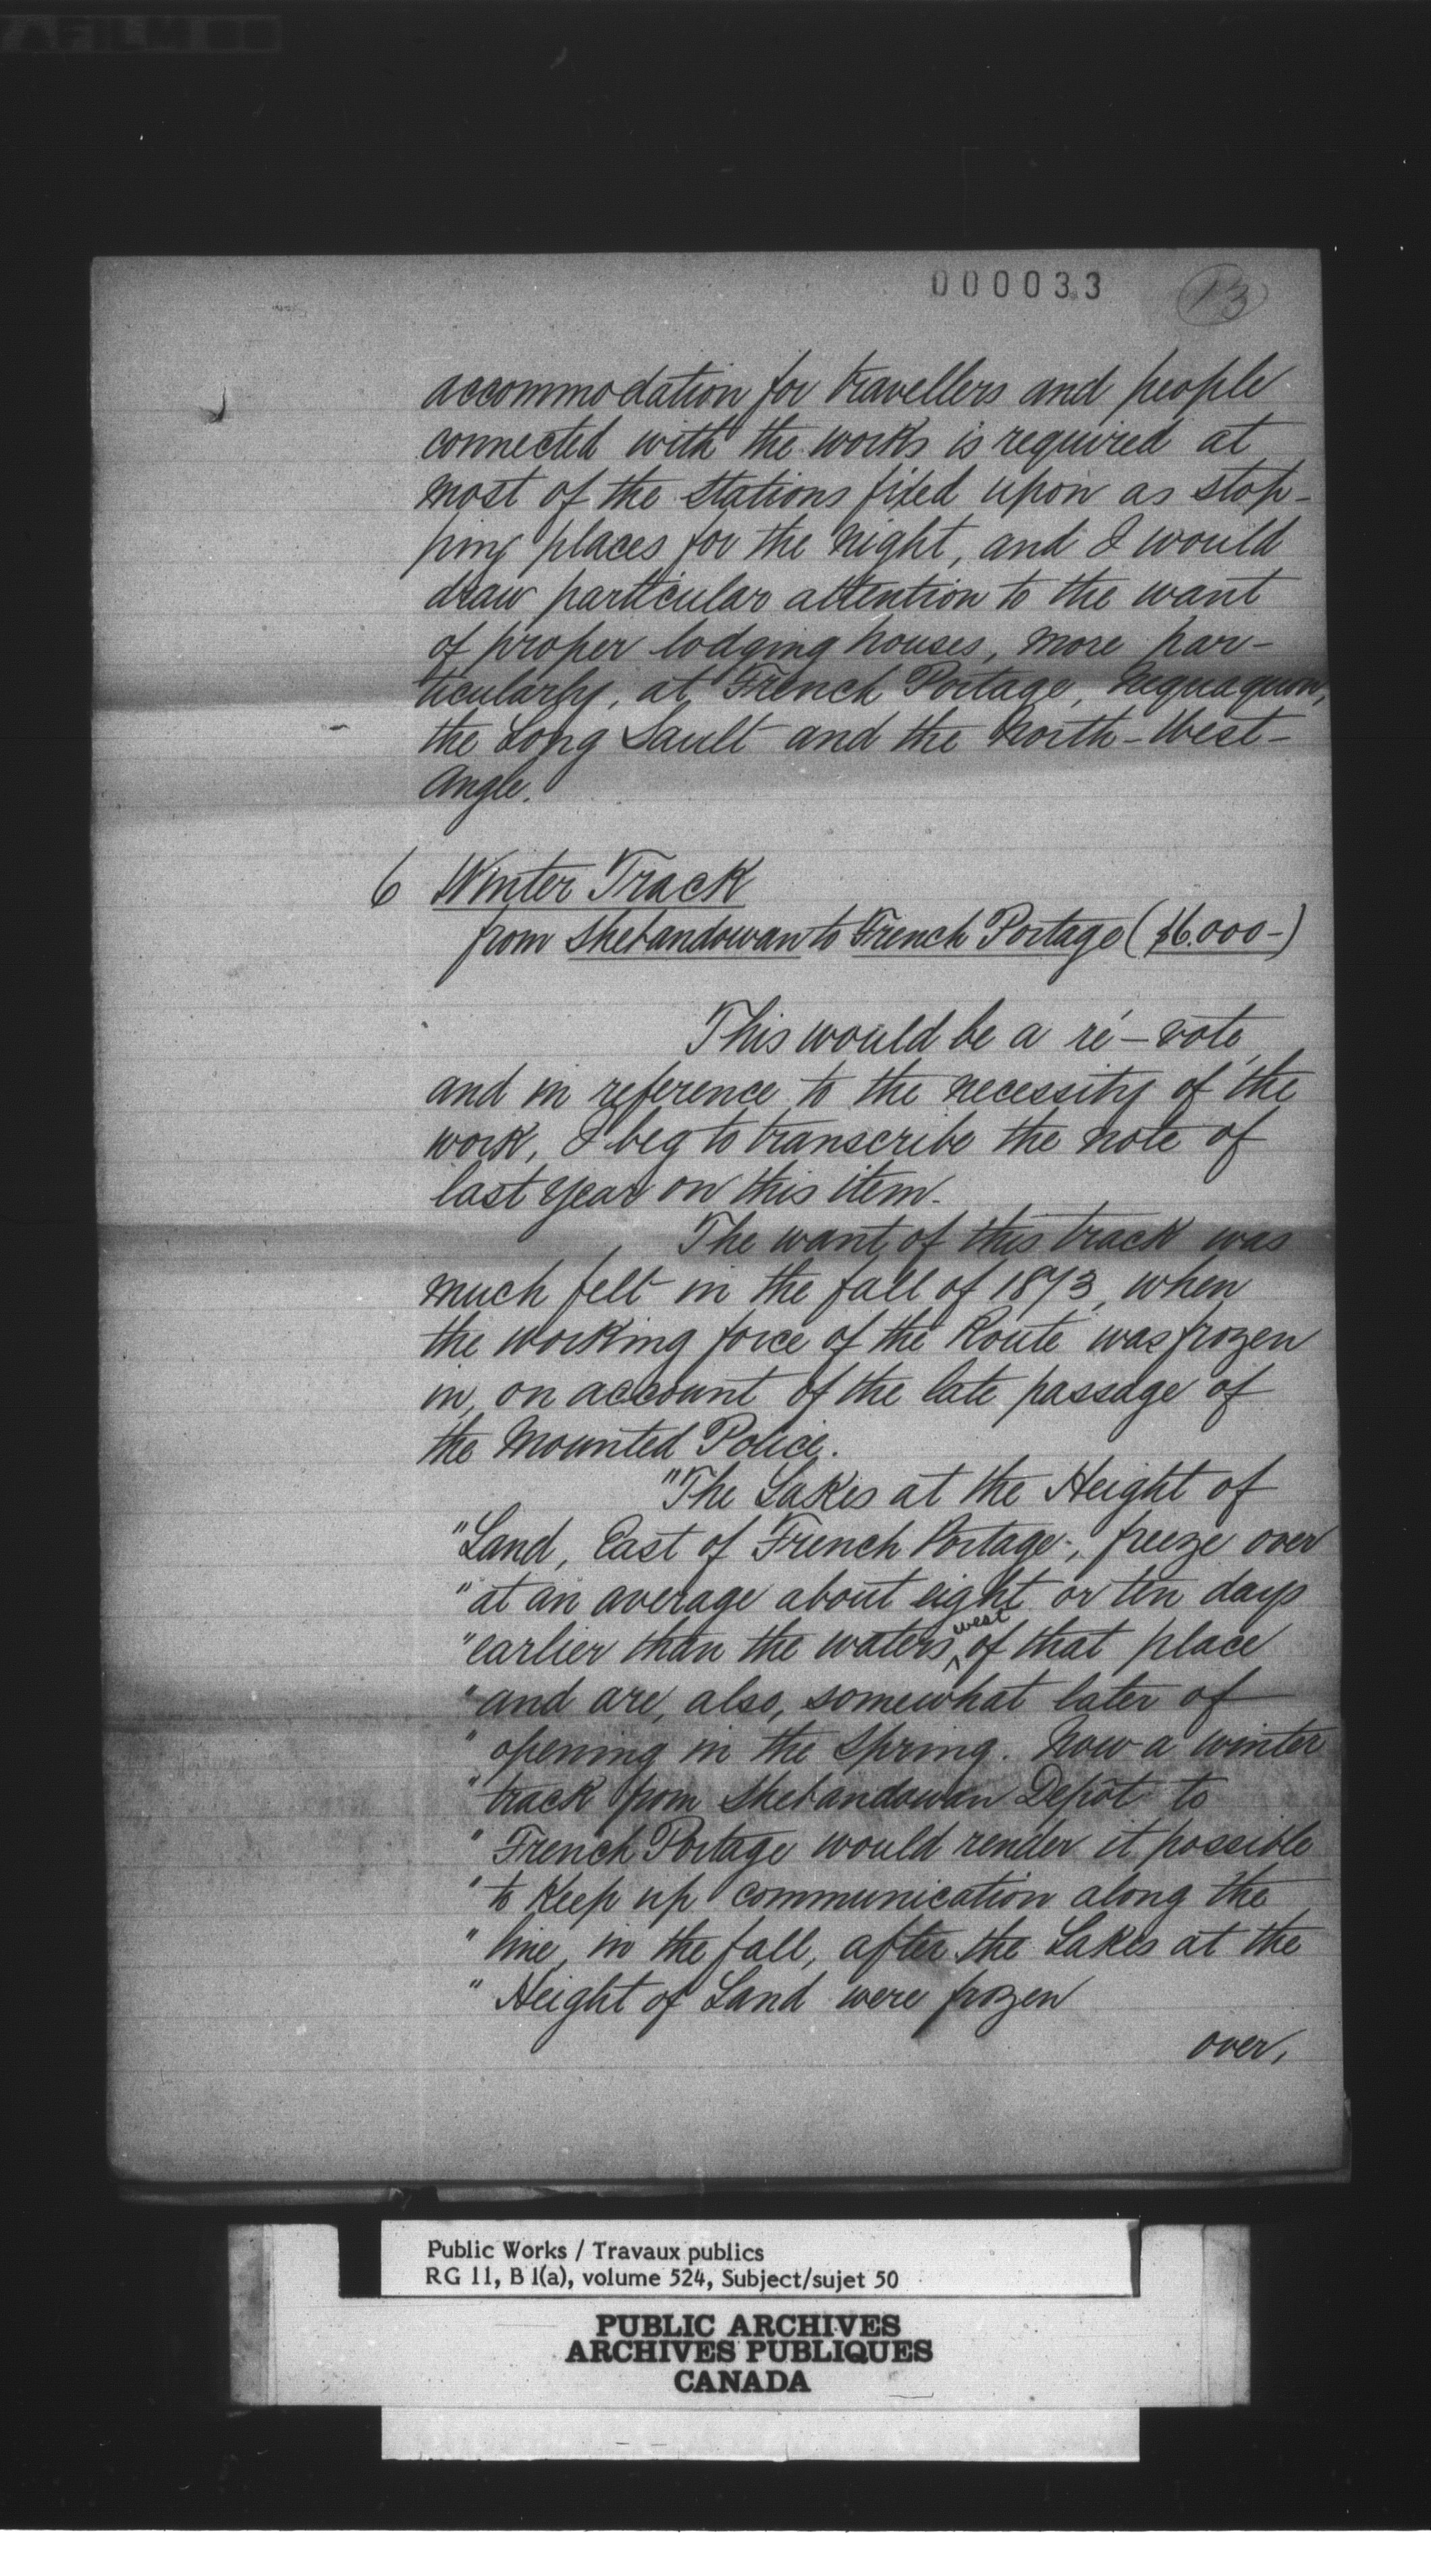 000033 13
accommodation for travellers and people
connected with the works is required at
most of the stations fixed upon as stop-
ping places for the night, and I would
draw particular attention to the want
of proper lodging houses, more par-
ticularly, at French Portage, Nequaquon,
the Long Sault and the North-West-
Angle.
6 Winter Track
from Shebandowan to French Portage ($6.000-)
This would be a ré-vote,
and in reference to the necessity of the
work, I beg to transcribe the note of
last year on this item.
The want of this track was
much felt in the fall of 1873, when
the working force of the Route was frozen
in, on account of the late passage of
the Mounted Police.
"The Lakes at the Height of
"Land, East of French Portage, freeze over
"at an average about eight or ten days
"earlier than the waters west of that place
"and are, also, somewhat later of
"opening in the Spring. Now a winter
"track from Shebandowan Depôt to
"French Portage would render it possible
"to keep up communication along the
"line, in the fall, after the Lakes at the
"Height of Land were frozen
over,
Public Works / Travaux publics
RG 11, B 1(a), volume 524, Subject/sujet 50
PUBLIC ARCHIVES
ARCHIVES PUBLIQUES
CANADA